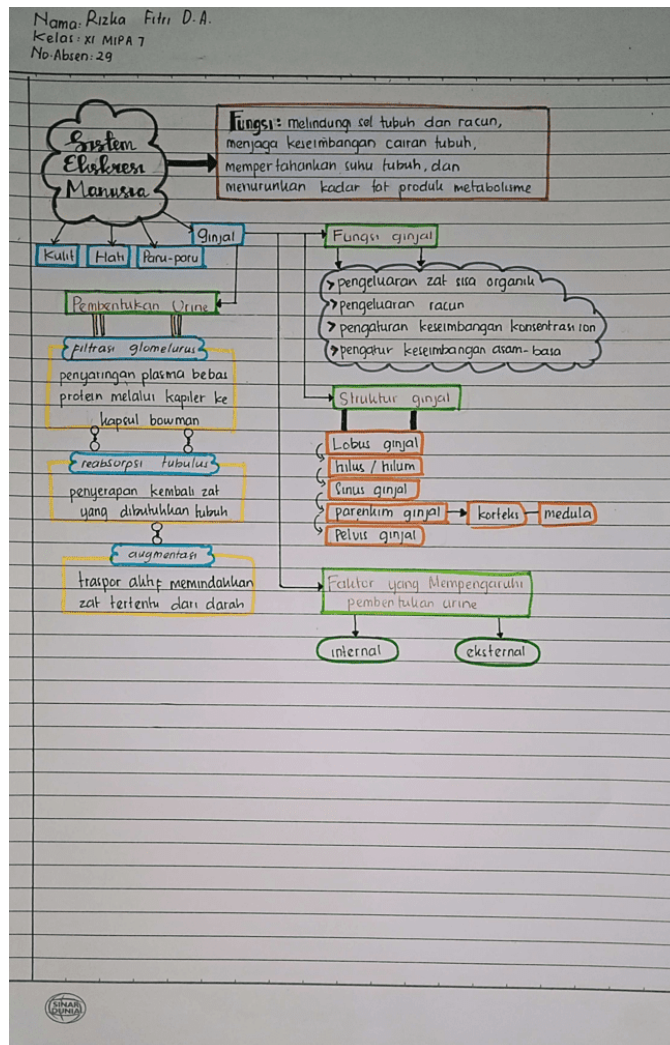 Nama: Rizka Fitri D.A.
Kelas: XI MIPA 7
No.Absen: 29
Sistem
Ekskresi
Manusia
Fungsi: melindungi sel tubuh dan racun,
menjaga keseimbangan cairan tubuh,
mempertahankan suhu tubuh, dan
menurunkan kadar tot produk metabolisme
Kulit
Hati
Paru-paru
ginjal
Pembentukan Urine
filtrasi glomelurus
penyaringan plasma bebas
protein melalui kapiler ke
kapsul bowman
reabsorpsi tubulus
penyerapan kembali zat
yang dibutuhkan tubuh
augmentasi
traspor aktif memindahkan
zat tertentu dari darah
Fungsi ginjal
> pengeluaran zat sisa organik
> pengeluaran racun
> pengaturan keseimbangan konsentrasi ion
> pengatur keseimbangan asam-basa
Struktur ginjal
Lobus ginjal
hilus / hilum
Sinus ginjal
parenkim ginjal
korteks
medula
Pelvis ginjal
Faktor yang Mempengaruhi
pembentukan urine
internal
eksternal
SINAR
DUNIA